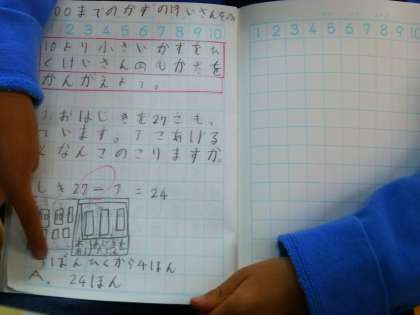 00までのかずのけいさん
1 2 3 4 5 6 7 8 9 10
2 3 4 5 6 7 8 9 10
10より小さいかずをひ
くけいさんのしかたを
かんがえよう。
おはじきを27こも
ています。3こあげる
となんこのこりますか。
しき27-3=24
ばんひくから4ほん
A. 24ほん